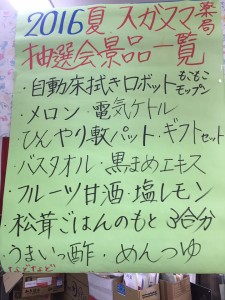 2016夏 スガヌマ薬局
抽選会景品一覧
・自動床拭きロボット もこもこモップン
・メロン・電気ケトル
・ひんやり敷パット・ギフトセット
・バスタオル・黒まめエキス
・フルーツ甘酒・塩レモン
・松茸ごはんのもと 3合分
・うまいっ酢・めんつゆ